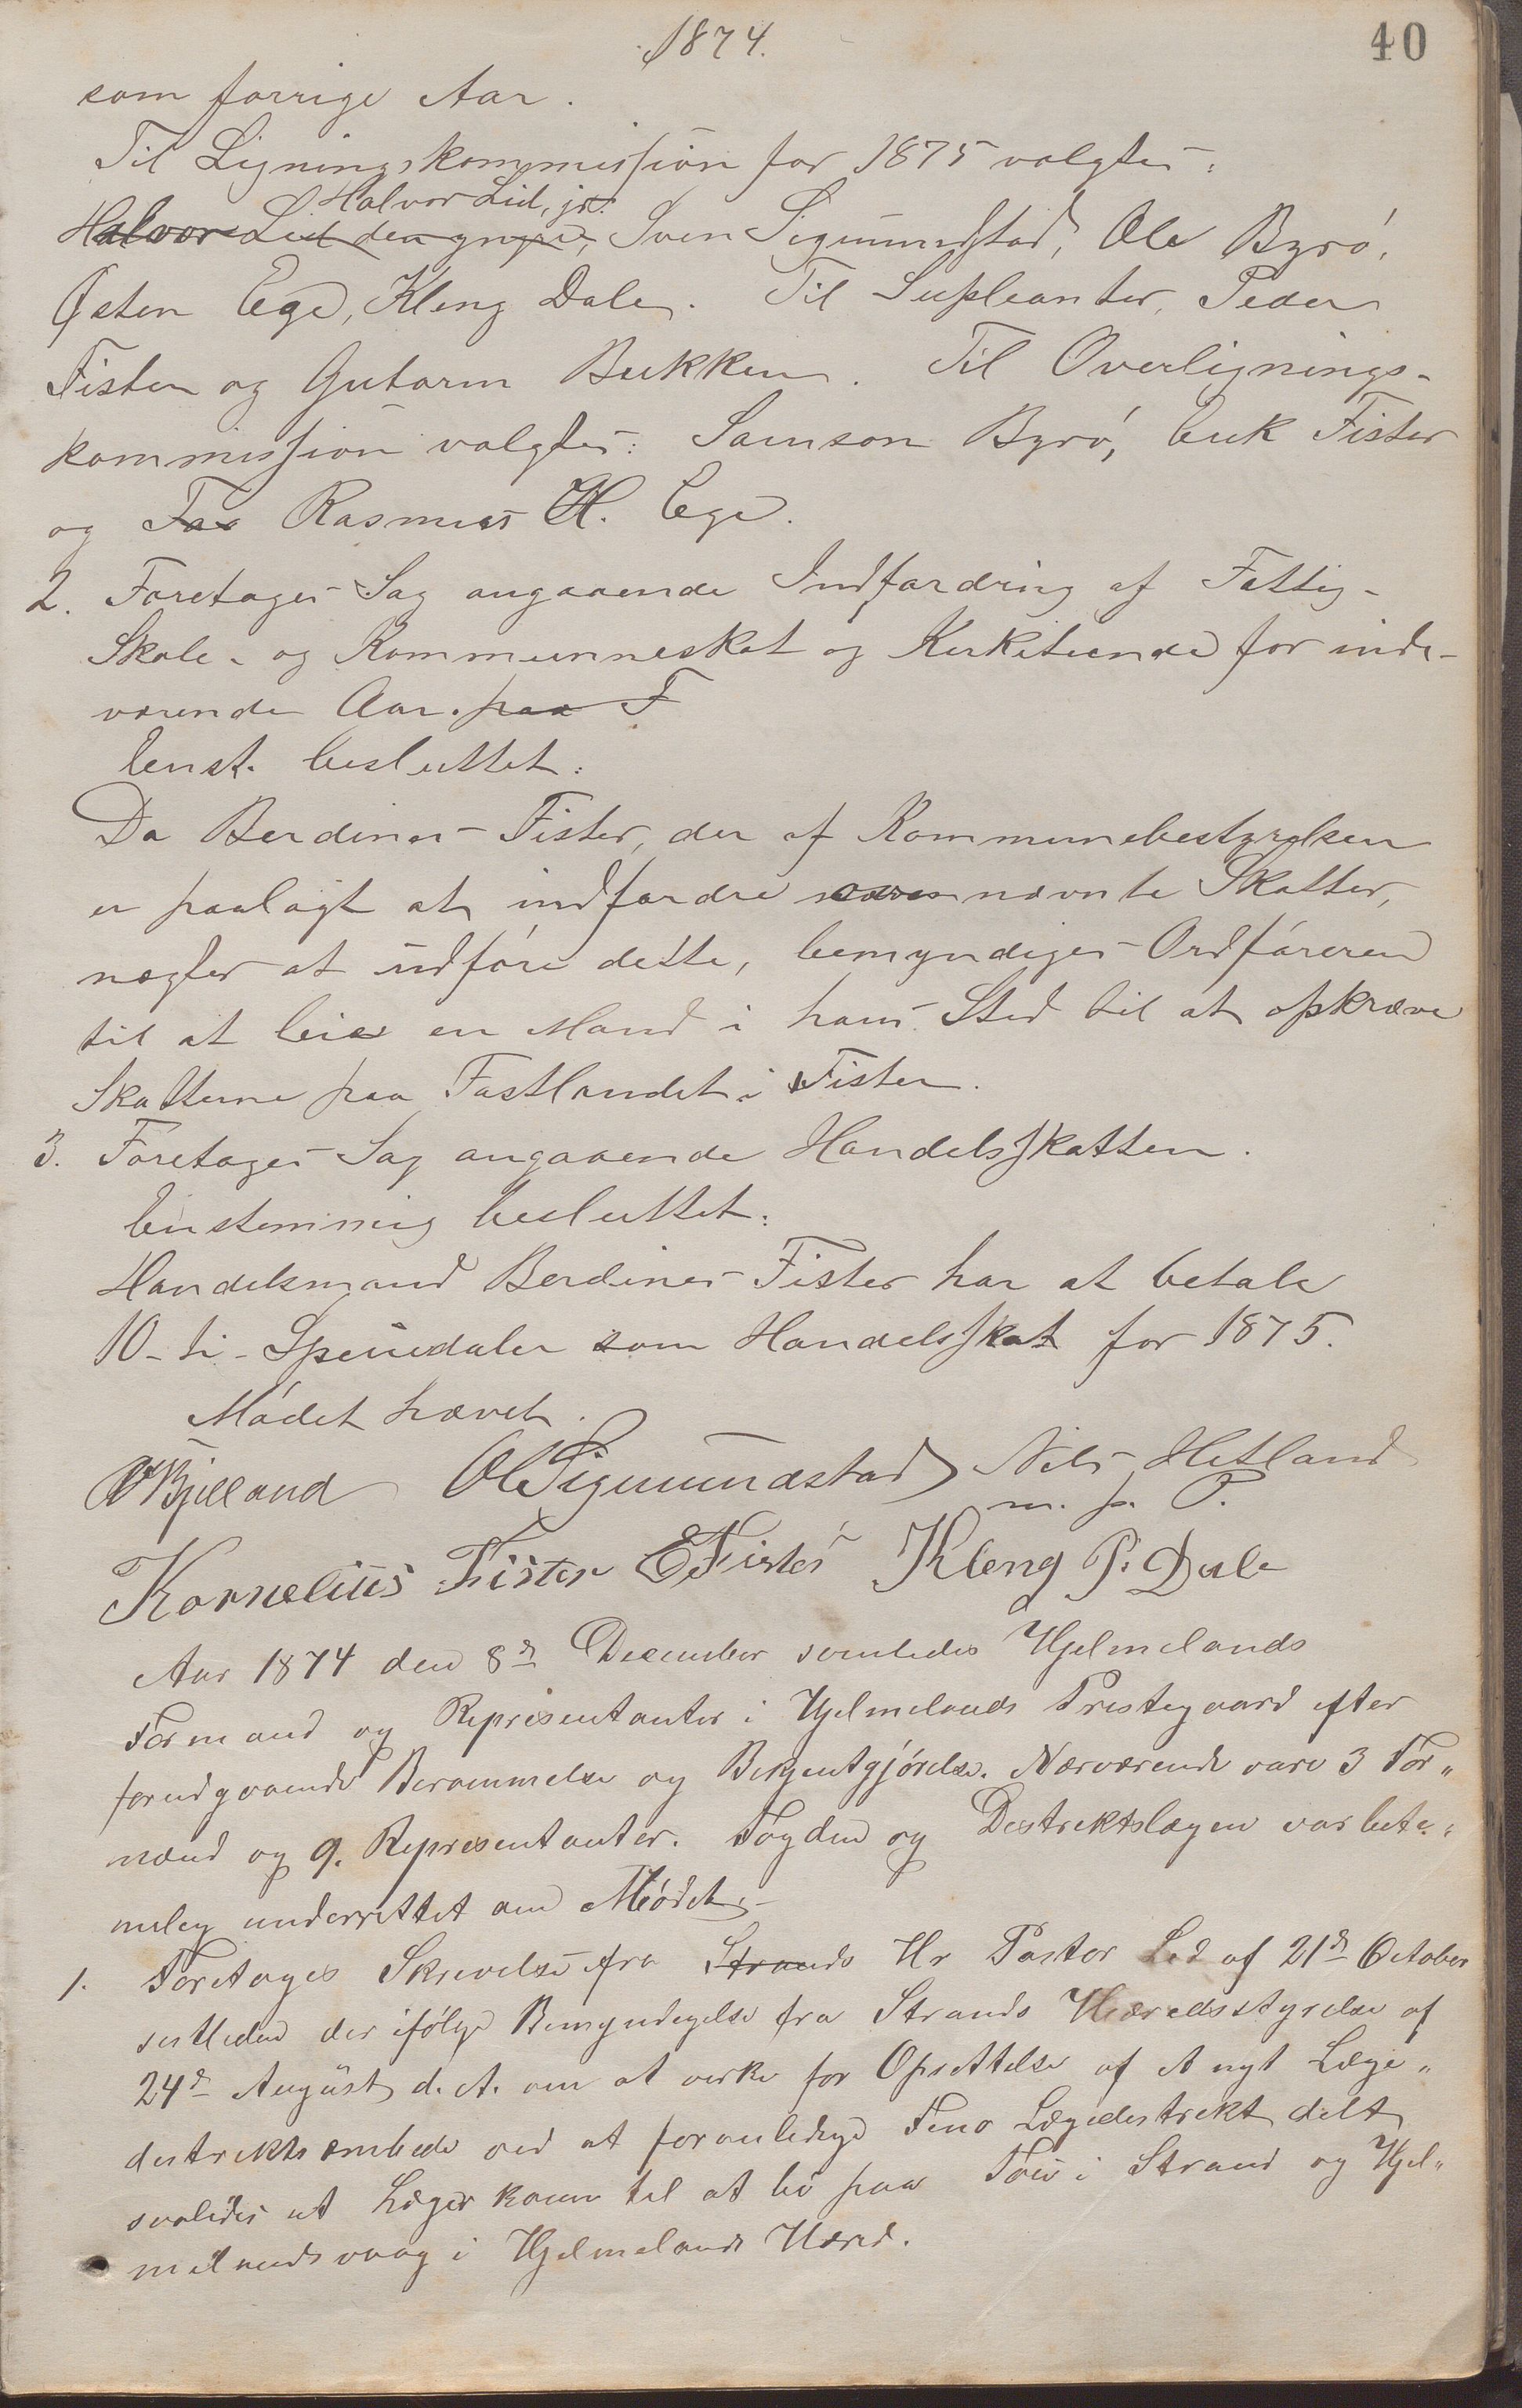 1874.
40
som forrige Aar.
Til Ligningskommission for 1875 valgtes:
Halvor Lid, jr.
Halvor Lid den yngre, Sven Sigmundstad, Ole Byrø,
Østen Ege, Kleng Dale. Til Supleanter, Peder
Fister og Gutorm Bukken. Til Overlignings-
kommission valgtes: Samson Byrø, Erik Fister
og Tas Rasmus H. Ege.
2. Foretages Sag angaaende Indfordring af Fattig-
Skole- og Kommuneskat og Kirketiende for inde-
værende Aar. paa F
Enst. besluttet:
Da Berdines Fister, der af Kommunebestyrelsen
er paalagt at indfordre nævnte Skatter,
nægter at udføre dette, bemyndiges Ordføreren
til at leie en Mand i hans Sted til at opkræve
Skatterne paa Fastlandet i Fister.
3. Foretages Sag angaaende Handelsskatten.
Enstemmig besluttet:
Handelsmand Berdines Fister har at betale
10 - ti - Speciedaler som Handelsskat for 1875.
Mødet hævet.
Bjelland OSigmundstad Nils Hetland
m. p. P.
Kornelius Fister EFister Kleng P. Dale
Aar 1874 den 8de December samledes Hjelmelands
Formænd og Representanter i Hjelmelands Prestegaard efter
forudgaaende Berammelse og Bekjentgjørelse. Nærværende vare 3 For„
mænd og 9. Representanter. Fogden og Destriktslægen var beti„
meleg underrettet om Mødet.-
1. Foretages Skrivelse fra Strands Hr Pastor Lid af 21de October
sestleden der ifølge Bemyndigelse fra Strands Herredsstyrelse af
24de August d. A. om at verke for Oprettelse af et nyt Læge„
destriktsembede ved at foranledige Finø Lægedestrikt delt
saaledes at Læger kom til at bo paa Tou i Strand og Hjel„
melandsvaag i Hjelmelands Hered.